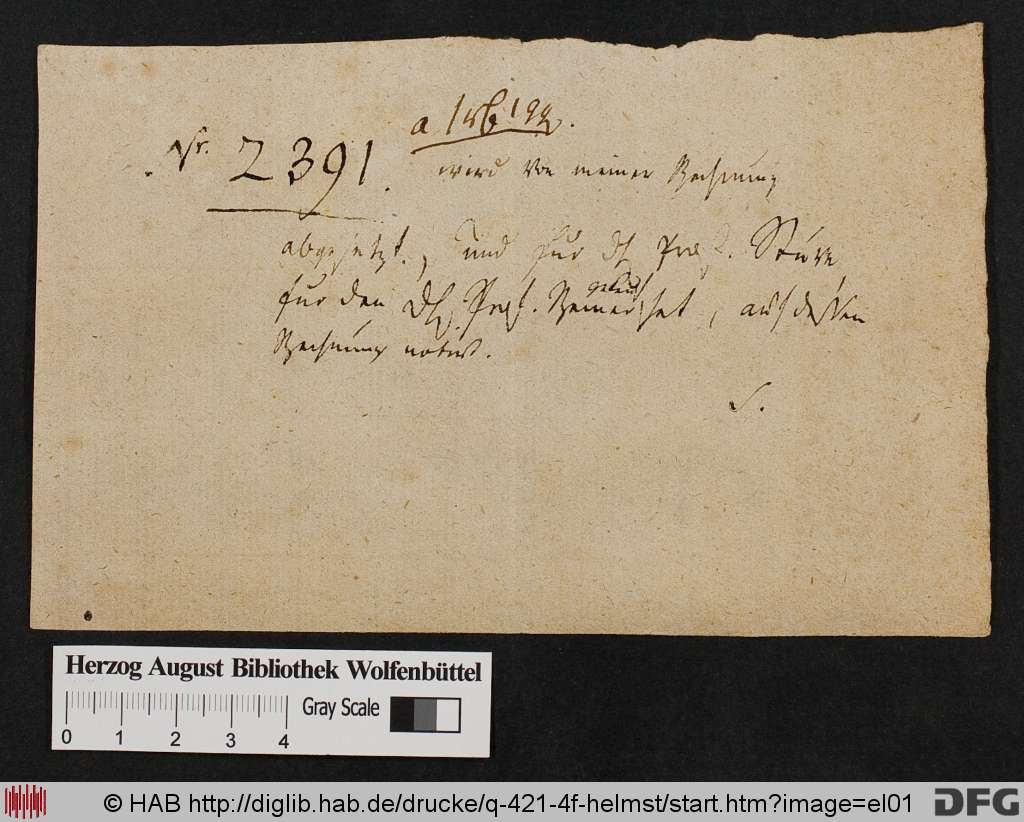 Nr. 2391.
wird von meiner Rechnung
abgesetzt, und für
für den Prof. hat, auf dessen
Rechnung notirt.
S.
Herzog August Bibliothek Wolfenbüttel
0 1 2 3 4 Gray Scale
© HAB http://diglib.hab.de/drucke/q-421-4f-helmst/start.htm?image=el01 DFG